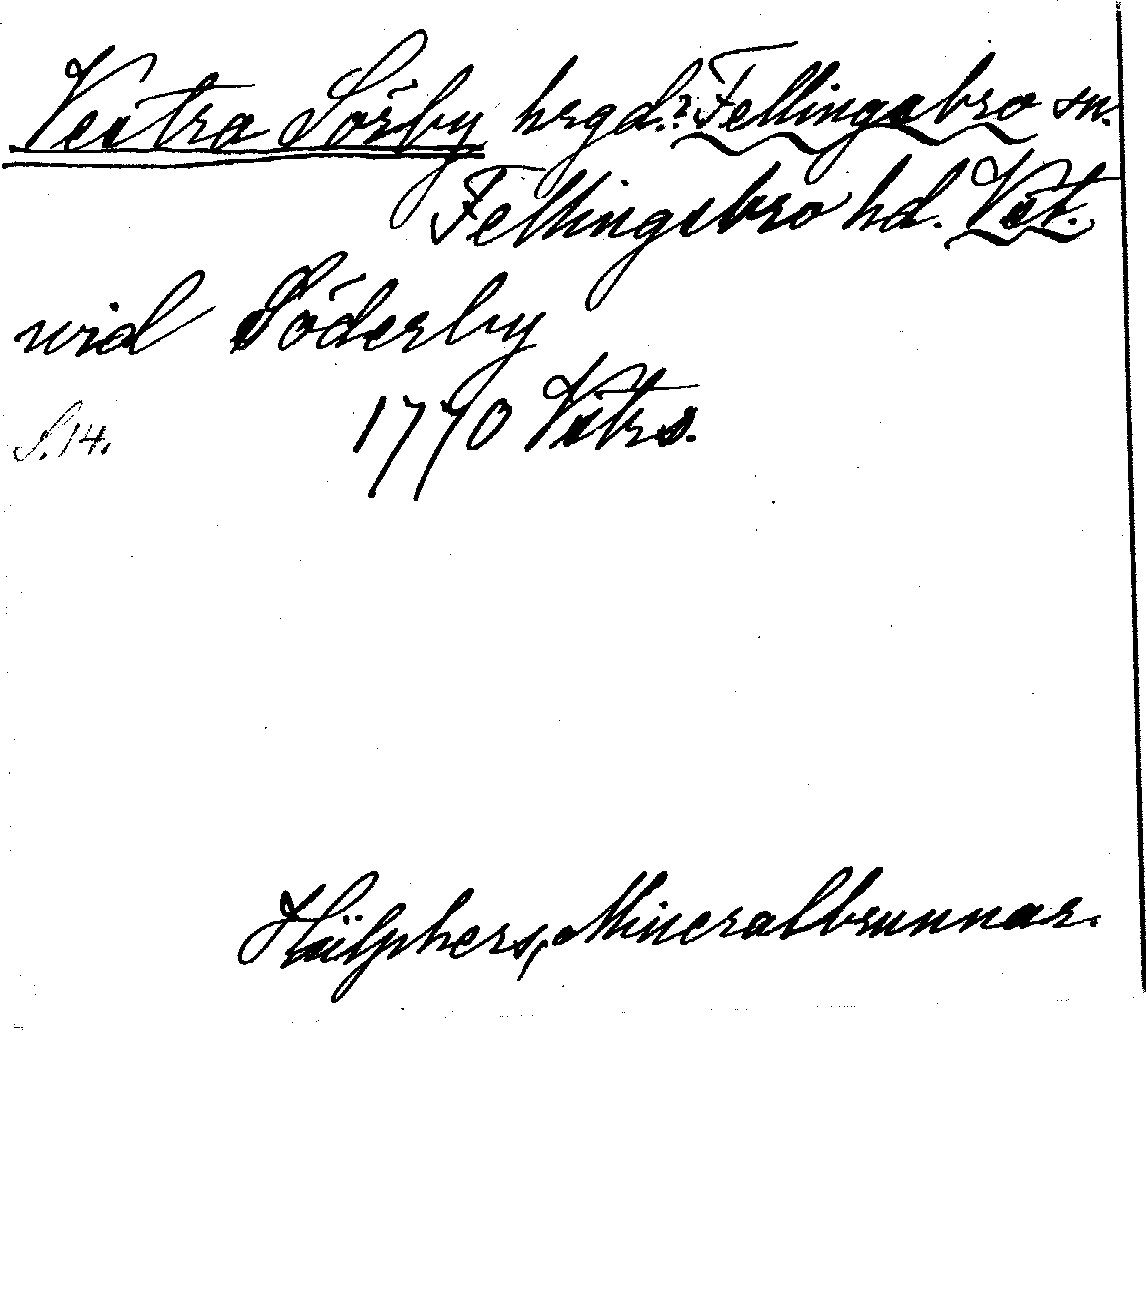 Vestra Sörby hrgd.? Fellingsbro sn.
Fellingsbro hd. Vstm.
wid Söderby
S. 14. 1770 Vitrs.
Hülphers, Mineralbrunnar.